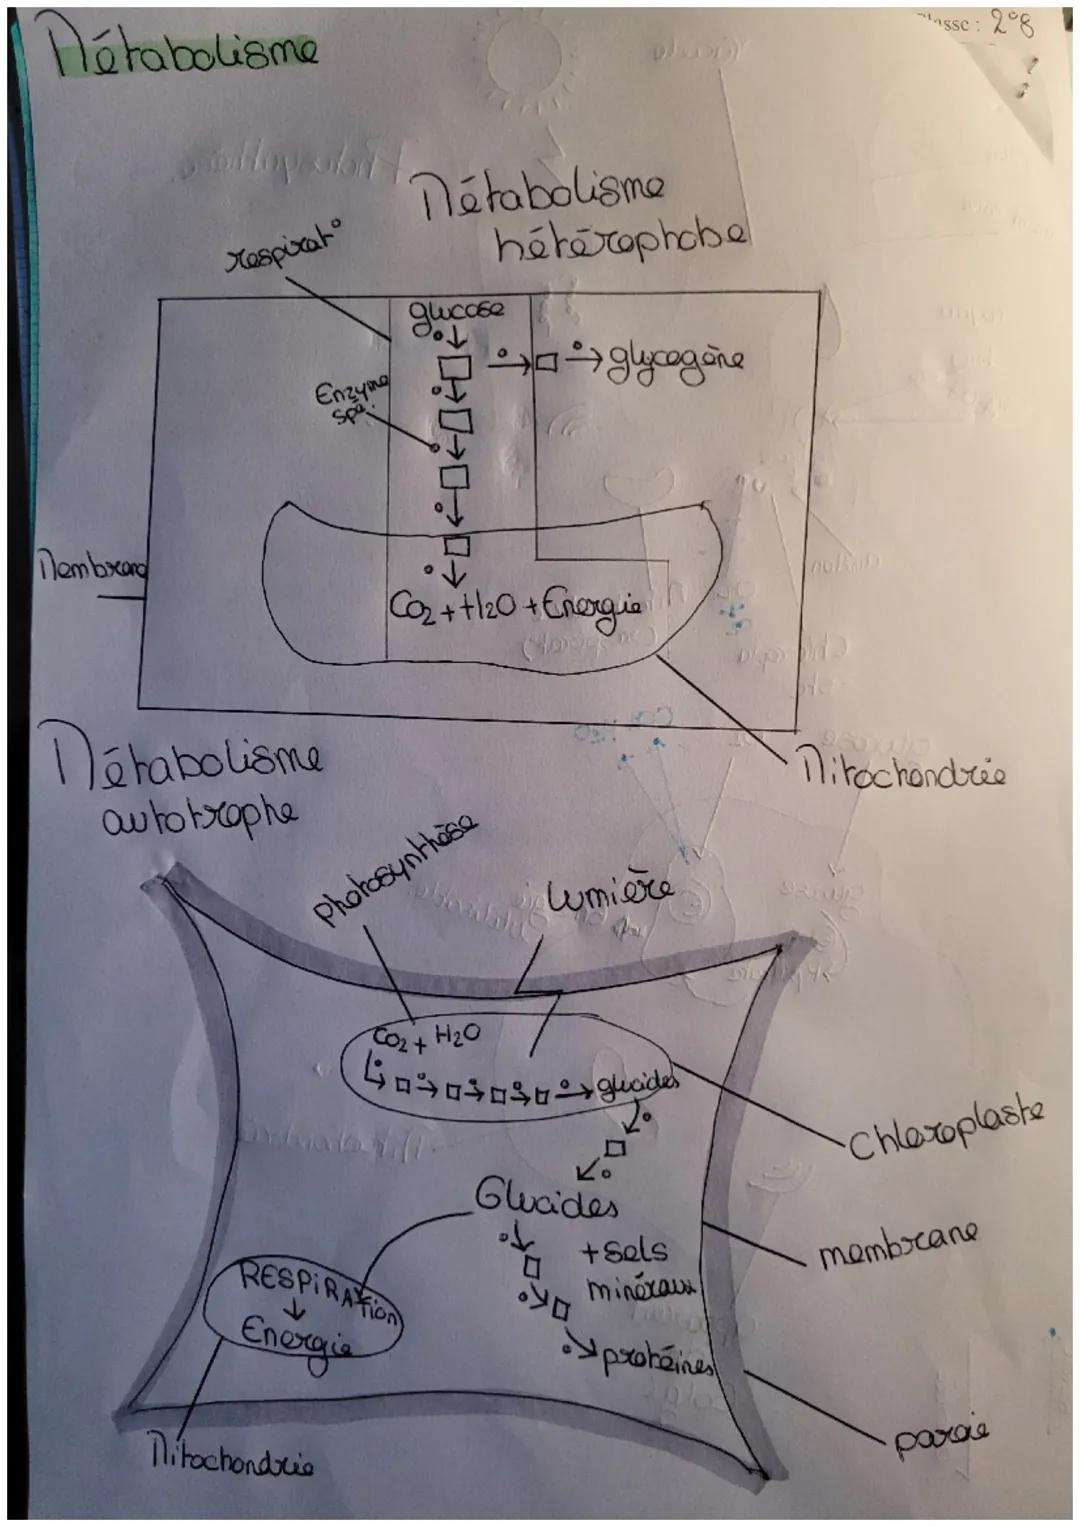 Métabolisme
Classe : 2°8
Métabolisme
hétérophobe
respirat°
glucose
glycogène
Enzyme
spé.
Membrane
CO2 + H2O + Energie
Mitochondrie
Métabolisme
autotrophe
photosynthèse
lumière
CO2 + H2O
glucides
Chloroplaste
Glucides
+ sels
minéraux
membrane
RESPIRAtion
Energie
protéines
paroie
Mitochondrie